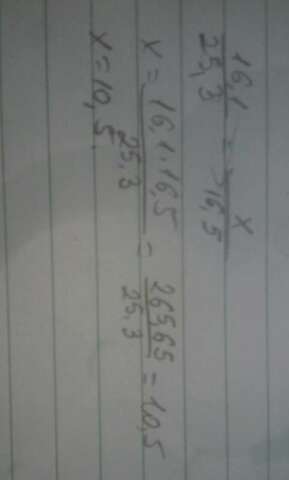 16,1/25,3 = x/16,5
x = 16,1·16,5/25,3 = 26565/25,3 = 10,5
x = 10,5.